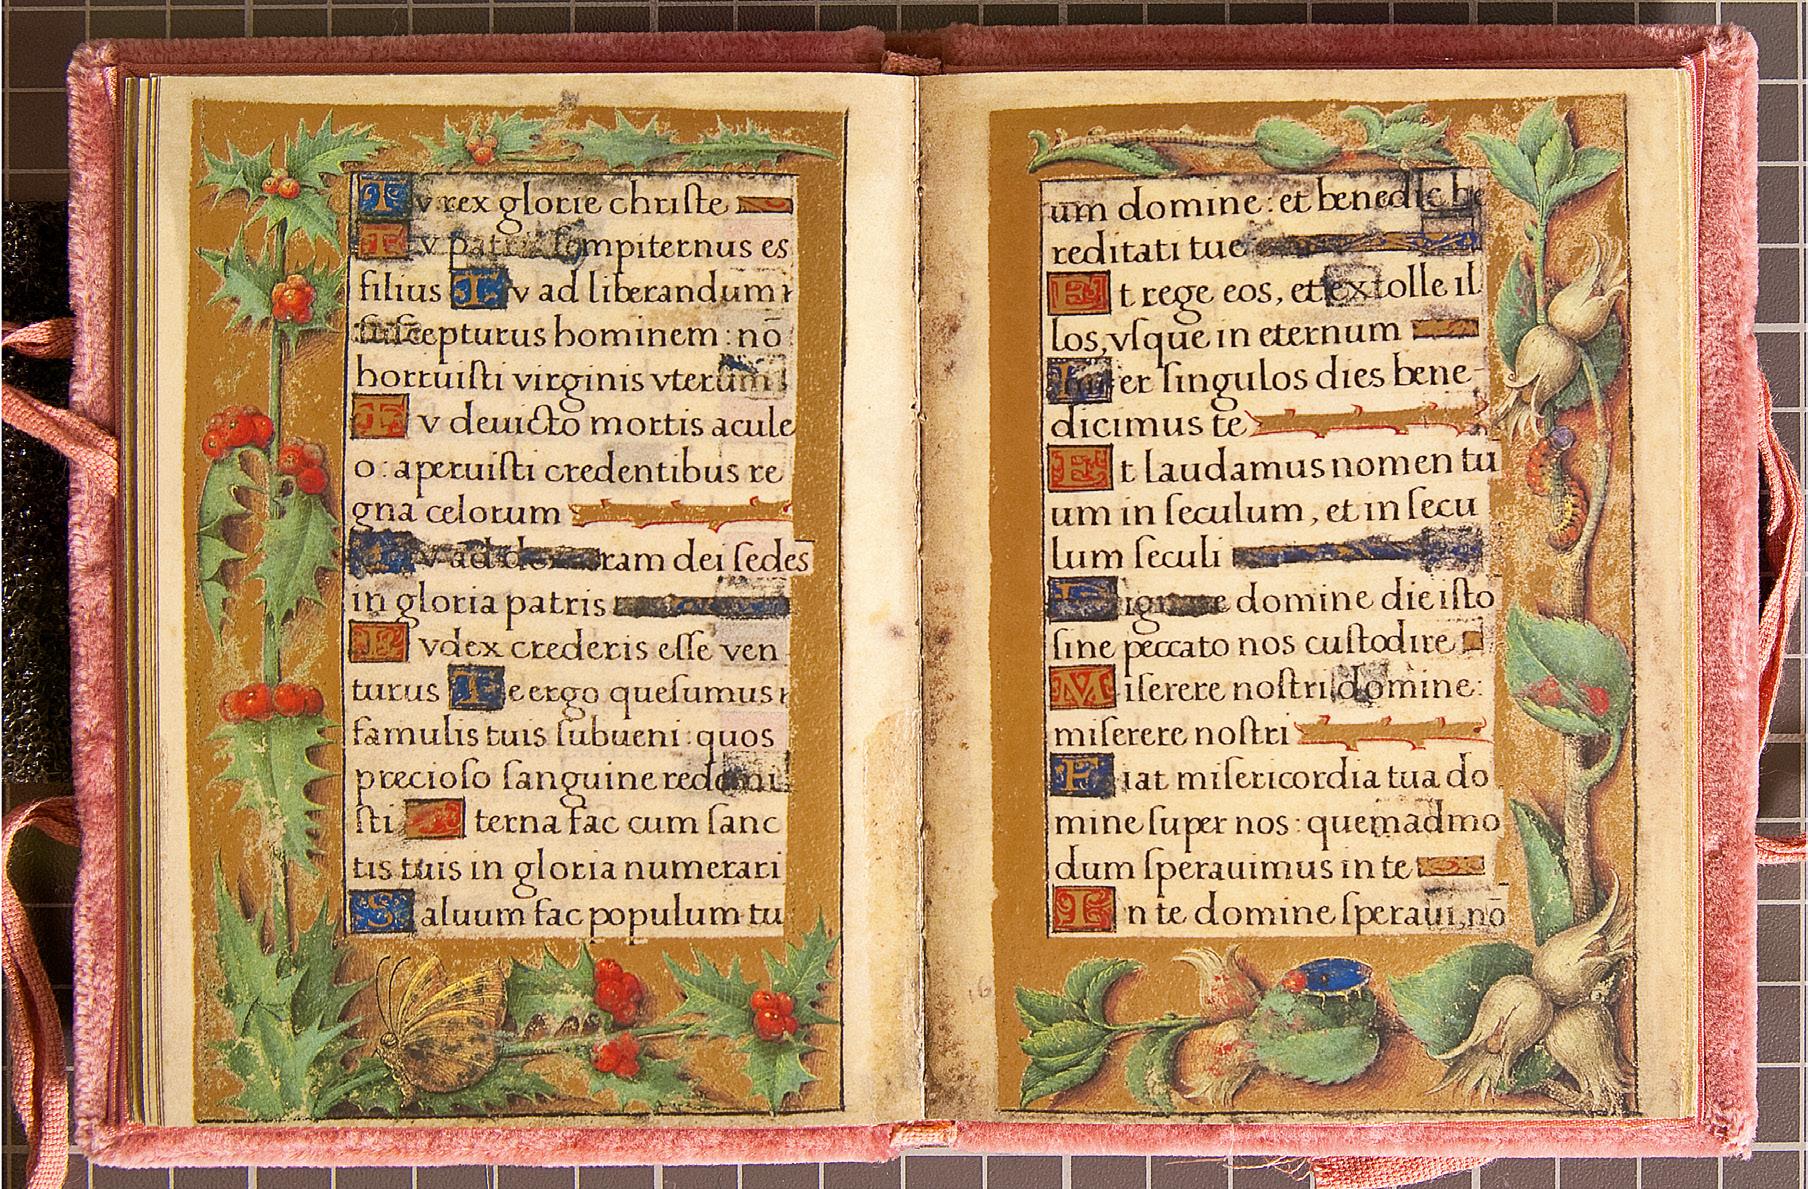 Tv rex glorie christe
Tv patris sempiternus es
filius Tv ad liberandum
suscepturus hominem : nō
horruisti virginis vterum
Tv deuicto mortis acule
o : aperuisti credentibus re
gna celorum
Tv ad dexteram dei sedes
in gloria patris
Iudex crederis esse ven
turus Te ergo quesumus
famulis tuis subueni : quos
precioso sanguine redemi
sti Eterna fac cum sanc
tis tuis in gloria numerari
Saluum fac populum tu
um domine : et benedic he
reditati tue
Et rege eos, et extolle il
los, vsque in eternum
Per singulos dies bene
dicimus te
Et laudamus nomen tu
um in seculum, et in secu
lum seculi
Dignare domine die isto
sine peccato nos custodire
Miserere nostri domine :
miserere nostri
Fiat misericordia tua do
mine super nos : quemadmo
dum sperauimus in te
In te domine speraui, nō